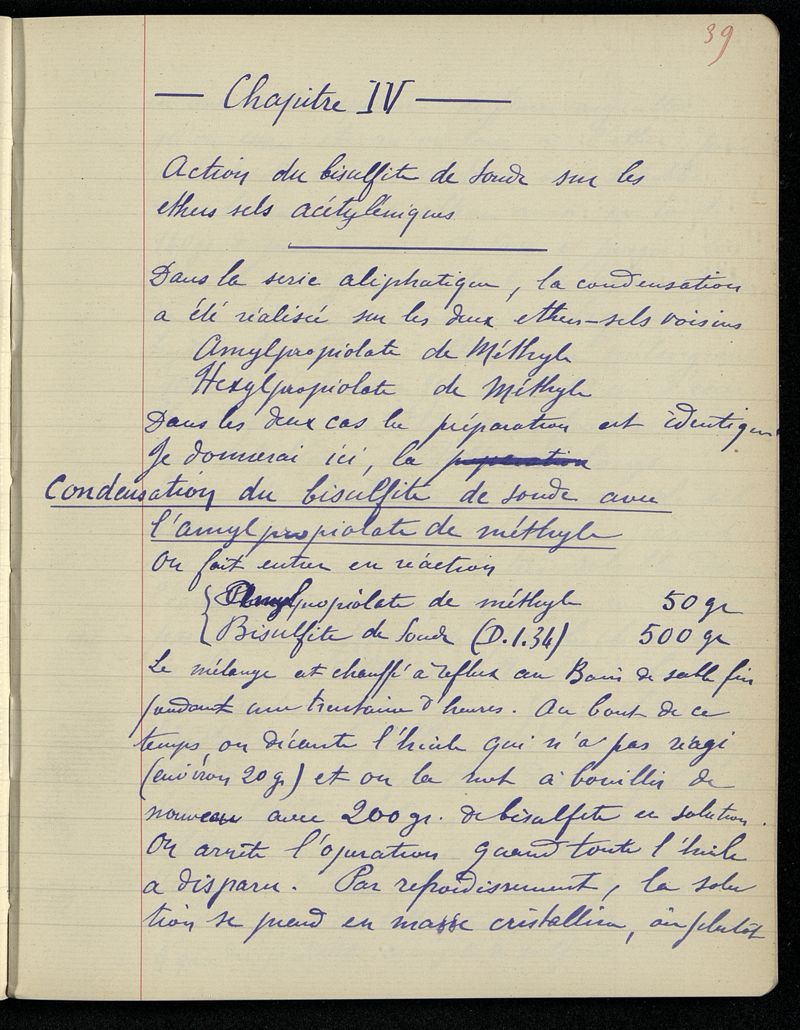 39
— Chapitre IV —
Action du bisulfite de soude sur les
ethers sels acétyléniques
Dans la serie aliphatique, la condensation
a été réalisée sur les deux ethers-sels voisins
Amylpropiolate de Méthyle
Hexylpropiolate de Méthyle
Dans les deux cas la préparation est identique
Je donnerai ici, la preparation
Condensation du bisulfite de soude avec
l'amylpropiolate de méthyle
On fait entrer en réaction
Amylpropiolate de méthyle 50 gr
Bisulfite de soude (D.1.34) 500 gr
Le mélange est chauffé à reflux au Bain de sable fin
pendant une trentaine d'heures. Au bout de ce
temps on décante l'huile qui n'a pas réagi
(environ 20 gr) et on la met à bouillir de
nouveau avec 200 gr. de bisulfite en solution.
On arrête l'operation quand toute l'huile
a disparu. Par refroidissement, la solu
tion se prend en masse cristalline, ou plutôt